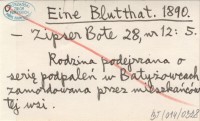 Eine Blutthat. 1890.
– Zipser Bote 28, nr 12: 5.
Rodzina podejrzana o
serię podpaleń w Batyżowcach
zamordowana przez mieszkańców
tej wsi.
BJ/014/0528